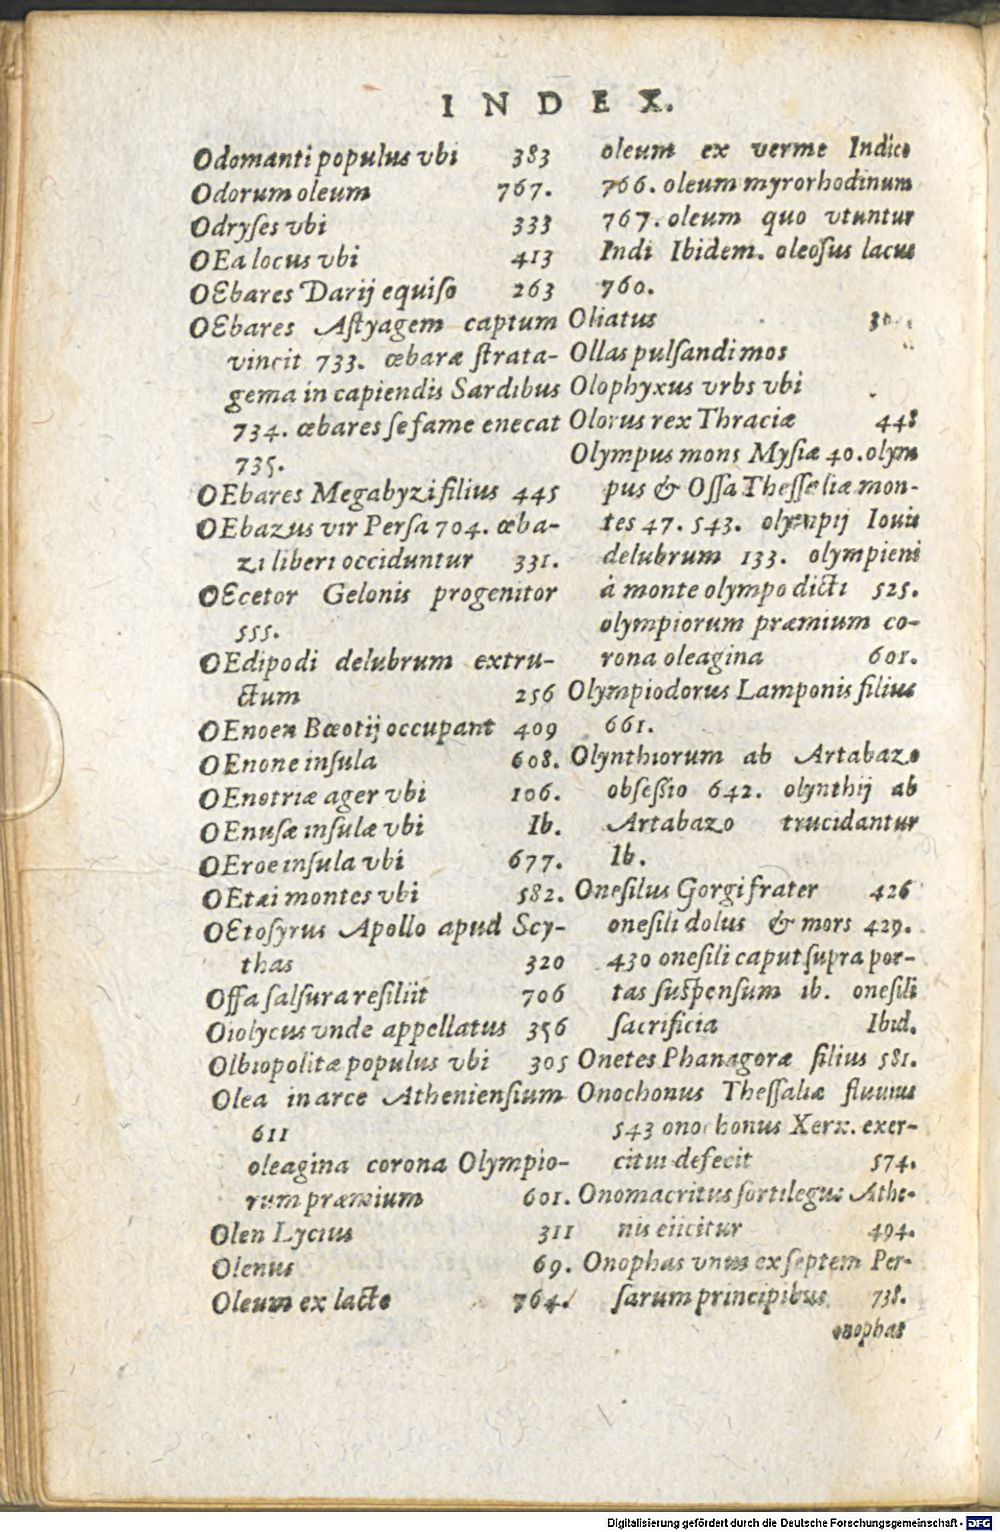 INDEX.
Odomanti populus vbi 383
Odorum oleum 767.
Odryſes vbi 333
OEa locus vbi 413
OEbares Darij equiſo 263
OEbares Aſtyagem captum
vincit 733. œbaræ ſtrata-
gema in capiendis Sardibus
734. œbares ſe fame enecat
735.
OEbares Megabyzi filius 445
OEbazus vir Perſa 704. œba-
zi liberi occiduntur 331.
OEcetor Gelonis progenitor
555.
OEdipodi delubrum extru-
ctum 256
OEnoen Bœotij occupant 409
OEnone inſula 608.
OEnotriæ ager vbi 106.
OEnuſæ inſulæ vbi Ib.
OEroe inſula vbi 677.
OEtæi montes vbi 582.
OEtoſyrus Apollo apud Scy-
thas 320
Offa ſalſura reſiliit 706
Oiolycus vnde appellatus 356
Olbiopolitæ populus vbi 305
Olea in arce Athenienſium
611
oleagina corona Olympio-
rum præmium 601.
Olen Lycius 311
Olenus 69.
Oleum ex lacte 764.
oleum ex verme Indico
766. oleum myrorhodinum
767. oleum quo vtuntur
Indi Ibidem. oleoſus lacus
760.
Oliatus
Ollas pulſandi mos
Olophyxus vrbs vbi
Olorus rex Thraciæ 448
Olympus mons Myſiæ 40. olym
pus & Oſſa Theſſaliæ mon-
tes 47. 543. olympij Iouis
delubrum 133. olympieni
à monte olympo dicti 525.
olympiorum præmium co-
rona oleagina 601.
Olympiodorus Lamponis filius
661.
Olynthiorum ab Artabazo
obſeſsio 642. olynthij ab
Artabazo trucidantur
Ib.
Oneſilus Gorgi frater 426
oneſili dolus & mors 429.
430 oneſili caput ſupra por-
tas ſuſpenſum ib. oneſili
ſacrificia Ibid.
Onetes Phanagoræ filius 581.
Onochonus Theſſaliæ fluuius
543 onochonus Xerx. exer-
citui defecit 574.
Onomacritus ſortilegus Athe-
nis eiicitur 494.
Onophas vnus ex ſeptem Per-
ſarum principibus 738.
onophas
Digitalisierung gefördert durch die Deutsche Forschungsgemeinschaft - DFG